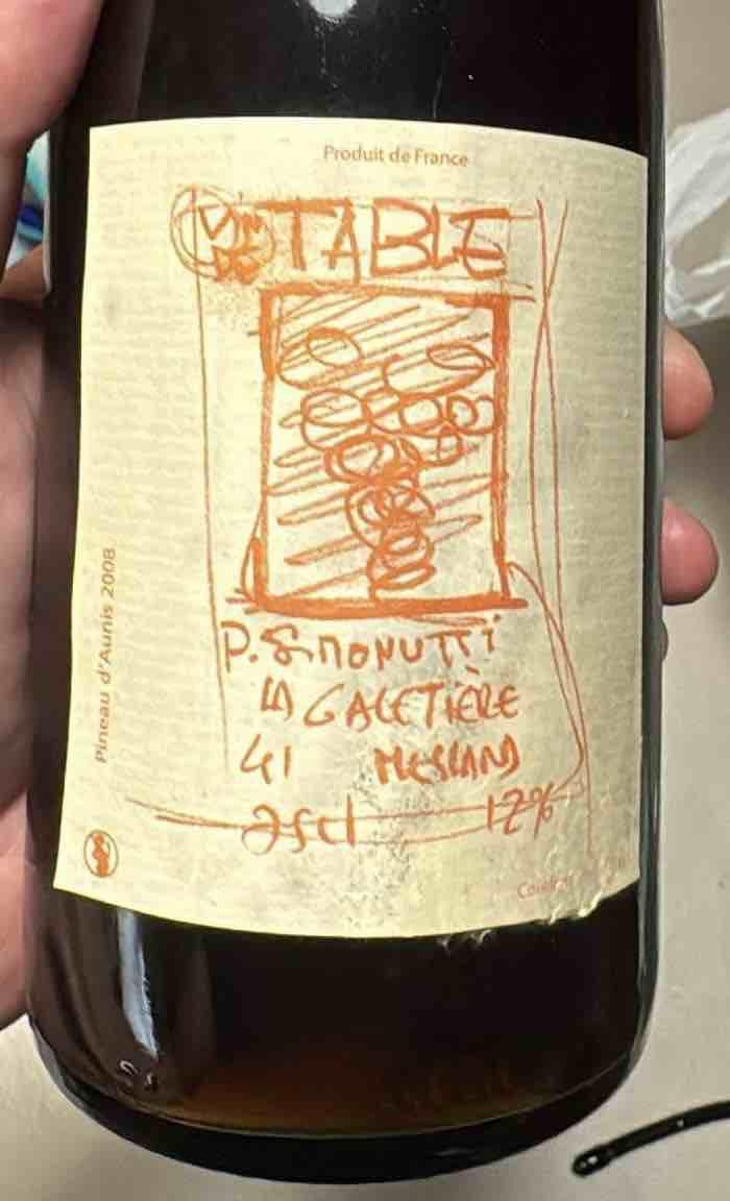 Produit de France
Vin de TABLE
P. SiMONUTTi
LA GALETIÈRE
41 MESLAND
75cl 12%
Pineau d'Aunis 2008